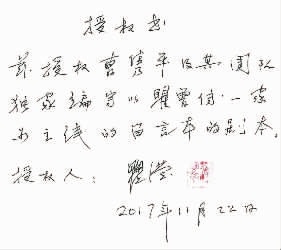 授权书
兹授权曹隽平及其团队
独家编写以瞿雪 一家
为主线的留言本的剧本。
授权人：瞿莹
2017年11月22日